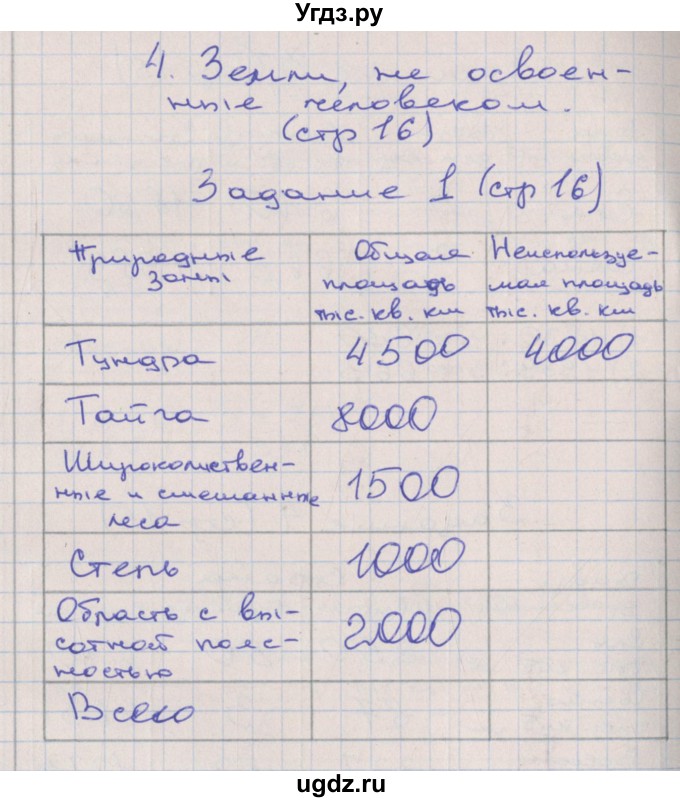 Угдз.ру
4. Земли, не освоен-
ные человеком.
(стр 16)
Задание 1 (стр 16)
Природные
зоны
Общая
площадь
тыс. кв. км
Неиспользуе-
мая площадь
тыс. кв. км
Тундра 4500 4000
Тайга 8000
Широколиствен-
ные и смешанные
леса
1500
Степь 1000
Область с вы-
сотной пояс-
ностью
2000
Всего
ugdz.ru